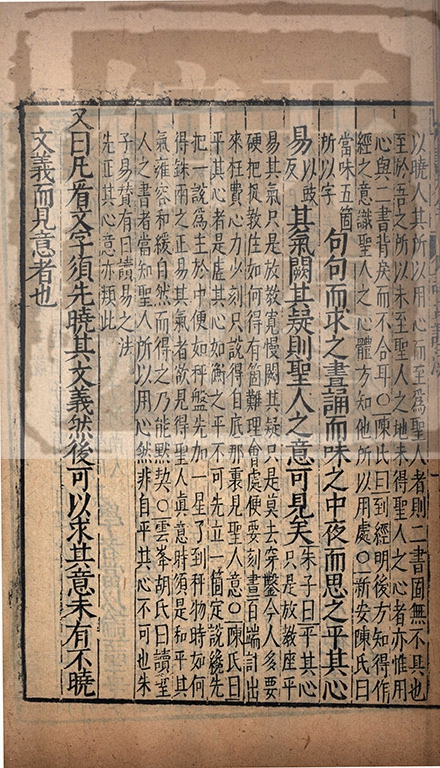 以曉人其所以用心而至為聖人者則二書固無不具也
至於吾之所以未至聖人之地未得聖人之心者亦惟用
心與二書背戾而不合耳○陳氏曰到經明後方知得作
經之意識聖人之心體方知他所以用處○新安陳氏曰
當味五箇
所以字
句句而求之晝誦而味之中夜而思之平其心
易
以豉
反
其氣闕其疑則聖人之意可見矣
朱子曰平其心
只是放教座平
易其氣只是放教寬慢闕其疑只是莫去穿鑿今人多要
硬把捉教住如何得有箇難理會處便要刻畫百端討出
來枉費心力少刻只說得自底那裏見聖人意○陳氏曰
平其心者是虛其心如衡之平不可先立一箇定說纔先
把一說爲主於中便如秤盤先加一星了到秤物時如何
得銖兩之正易其氣者欲見得聖人眞意時須是和平其
氣雍容和緩自然而得之乃能默契○雲峯胡氏曰讀聖
人之書者當知聖人所以用心然非自平其心不可也朱
子易賛有曰讀易之法
先正其心意亦類此
又曰凡看文字須先曉其文義然後可以求其意未有不曉
文義而見意者也